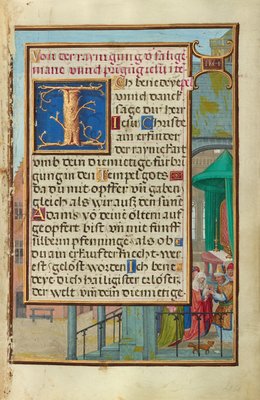 Von der raynigung v̄ salige
Ich benedeye
vnnd danck
sage dir herr
Jesu Christe
ain erfinder
der raynekait
vmb dein diemietige fur bit
gung in den Tempel gots
da du mit opffer vn̄ gaben
gleich als wir auß den sunt
Adams vō deinē öltern auf
geopfert bist vm̄ mit fünff
silberin pfenningen als ob
du am erkauffter knecht we
rest gelöst worden Ich bene
deye dich hailigister erlöser
der welt vm̄ dein diemietige